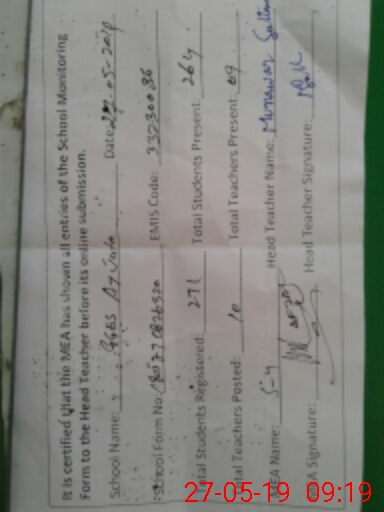 It is certified that the MEA has shown all entries of the School Monitoring
Form to the Head Teacher before its online submission.
School Name: GGES Date: 27-05-2019
School Form No: EMIS Code: 33230086
Total Students Registered: 271 Total Students Present: 264
Total Teachers Posted: 10 Total Teachers Present: 09
MEA Name: Head Teacher Name: Munawar Sultan
MEA Signature: Head Teacher Signature:
27-05-19 09:19